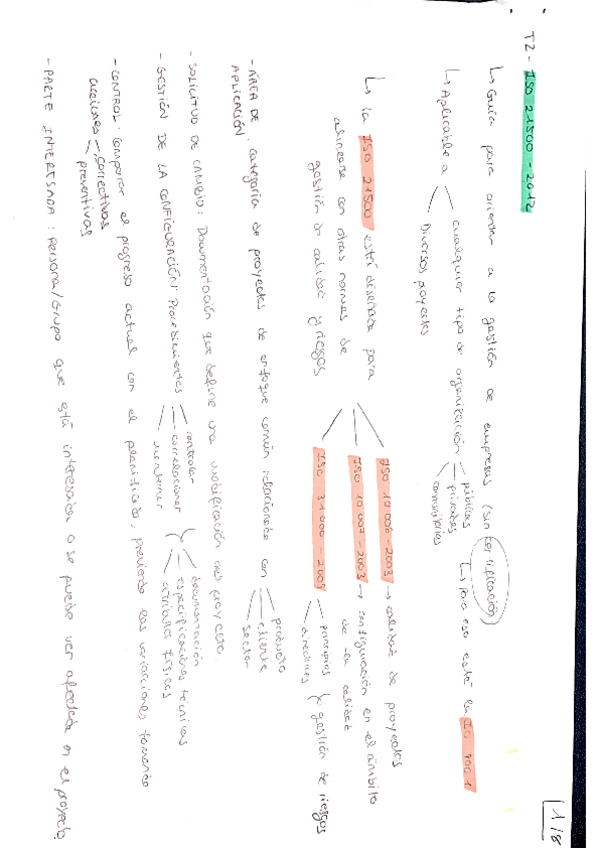 T2 - ISO 21500 - 2012
1/8
↳ Guía para orientar a la gestión de empresas (sin certificación)
↳ para eso está la ISO 9001
↳ Aplicable a
cualquier tipo de organización
públicas
privadas
comunitarias
Diversos proyectos
↳ La ISO 21500 está diseñada para
alinearse con otras normas de
gestión de calidad y riesgos
ISO 10 006 - 2003 → calidad de proyectos
ISO 10 007 - 2003 → configuración en el ámbito
de la calidad
ISO 31 000 - 2009
principios
directrices
gestión de riesgos
- ÁREA DE
APLICACIÓN
: categoría de proyectos de enfoque común relacionada con
producto
cliente
sector
- SOLICITUD DE CAMBIO: Documentación que define una modificación del proyecto.
- GESTIÓN DE LA CONFIGURACIÓN: Procedimientos
controlar
correlacionar
mantener
documentación
especificaciones técnicas
atributos físicos
- CONTROL: Comparar el progreso actual con el planificado, previendo las variaciones tomando
acciones
correctivas
preventivas
- PARTE INTERESADA: Persona/Grupo que está interesada o se puede ver afectada en el proyecto.